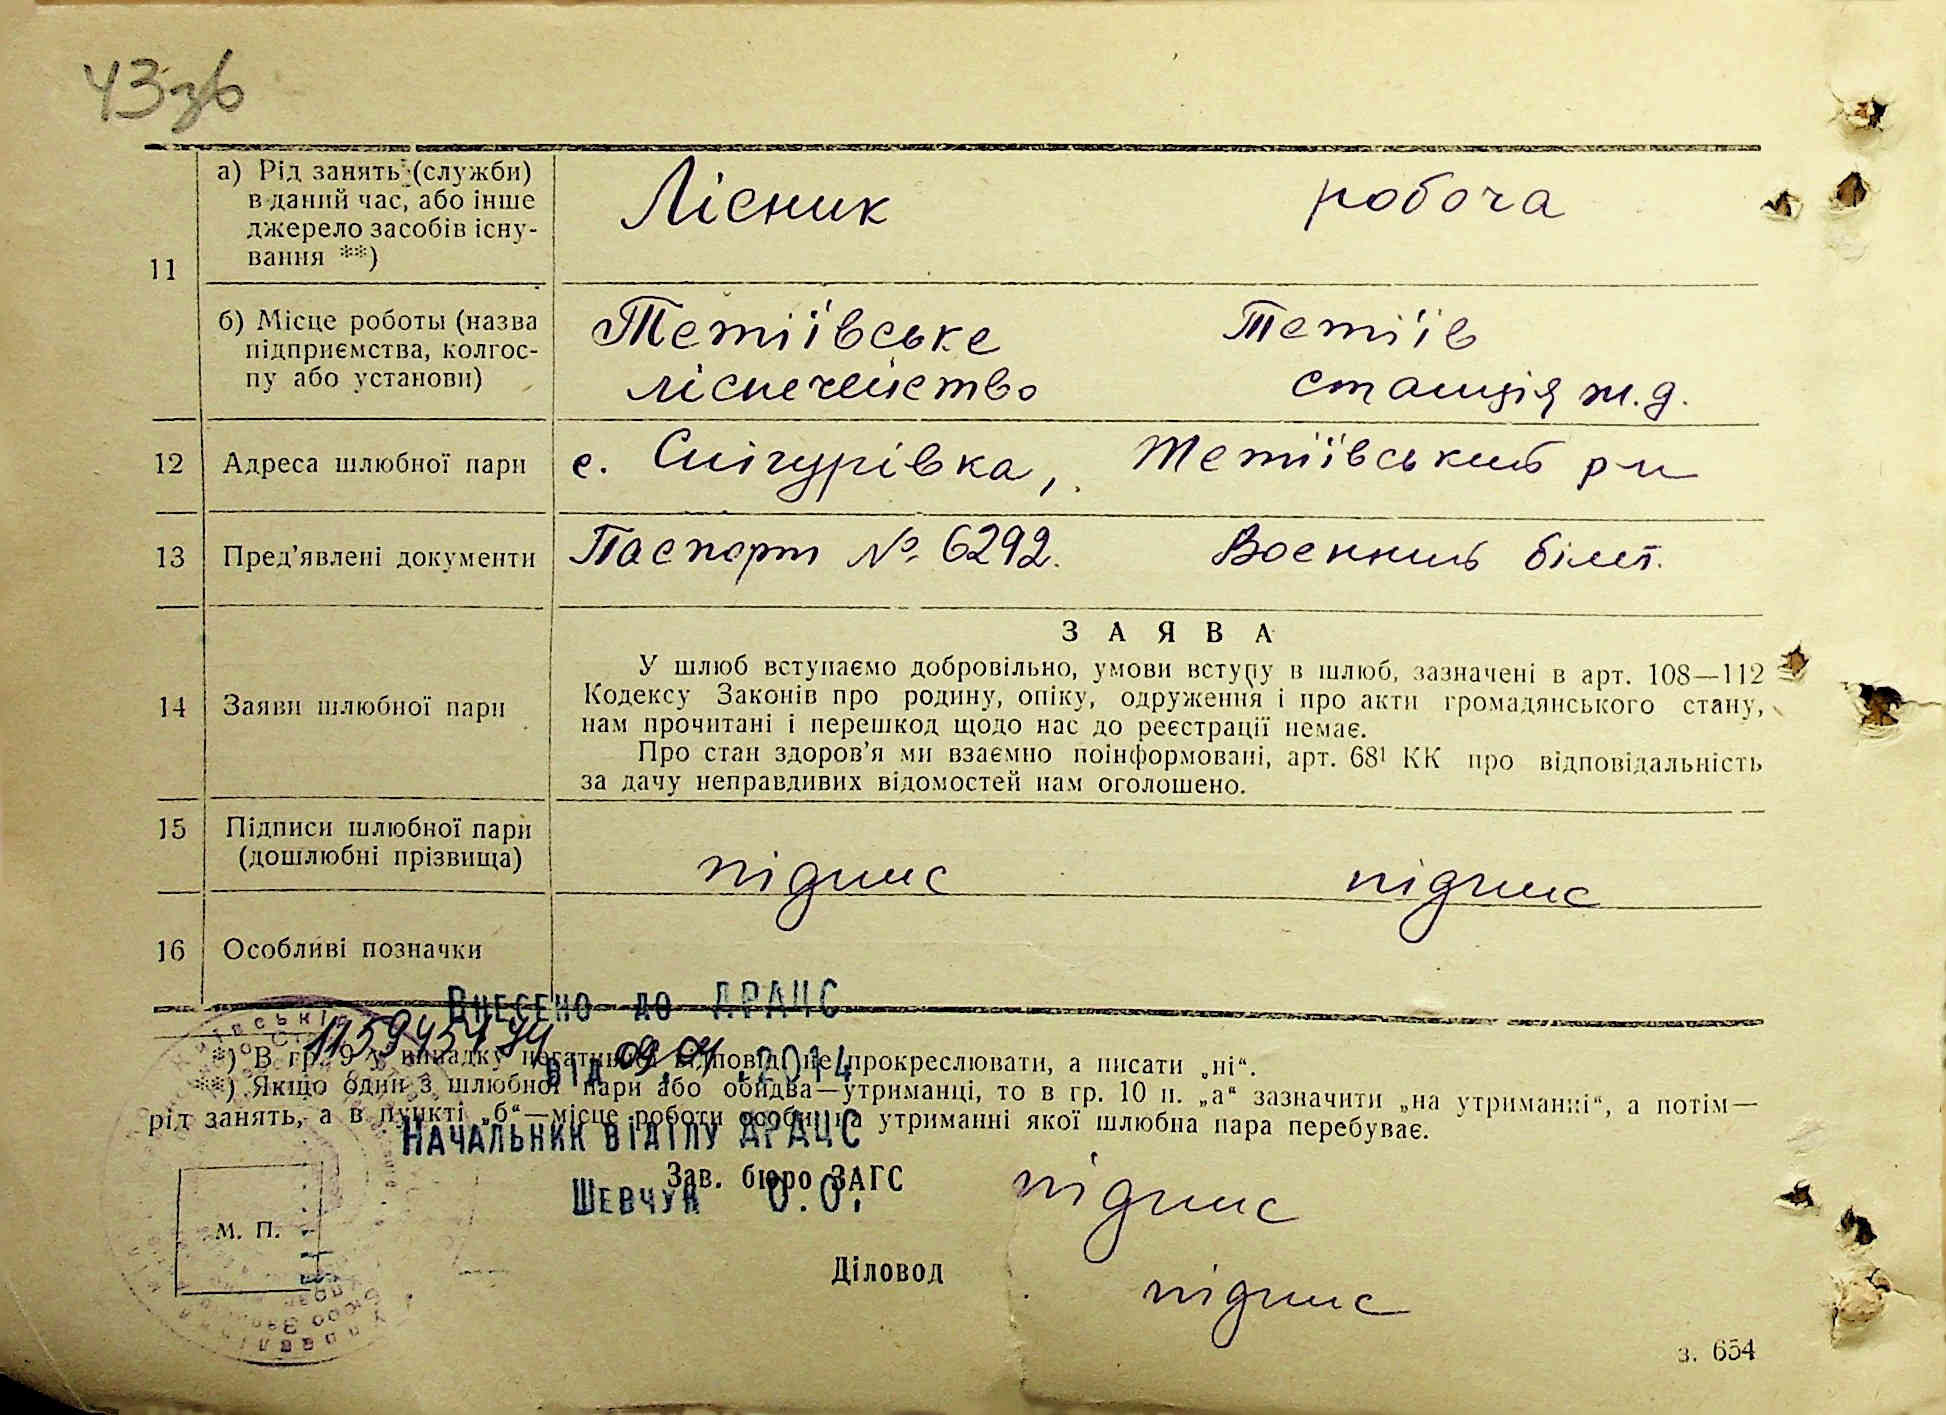 43зв
11
а) Рід занять (служби)
в даний час, або інше
джерело засобів існу-
вання **)
Лісник робоча
б) Місце роботы (назва
підприємства, колгос-
пу або установи)
Тетіївське Тетіїв
лісничейство станція ж.д.
12 Адреса шлюбної пари с. Снігурівка, Тетіївський р-н
13 Пред'явлені документи Паспорт № 6292. Воєнний білєт.
14 Заяви шлюбної пари
ЗАЯВА
У шлюб вступаємо добровільно, умови вступу в шлюб, зазначені в арт. 108—112
Кодексу Законів про родину, опіку, одруження і про акти громадянського стану,
нам прочитані і перешкод щодо нас до реєстрації немає.
Про стан здоров'я ми взаємно поінформовані, арт. 68¹ КК про відповідальність
за дачу неправдивих відомостей нам оголошено.
15 Підписи шлюбної пари
(дошлюбні прізвища)
підпис підпис
16 Особливі позначки
Внесено до ДРАЦС
від 09.04.2014
*) В гр. 9 у випадку негативної відповіді не прокреслювати, а писати „ні“.
**) Якщо один з шлюбної пари або обидва—утриманці, то в гр. 10 п. „а“ зазначити „на утриманні“, а потім—
рід занять, а в пункті „б“—місце роботи особи, на утриманні якої шлюбна пара перебуває.
Начальник відділу ДРАЦС
Зав. бюро ЗАГС підпис
Шевчук О.О.
М. П.
Діловод підпис
з. 654